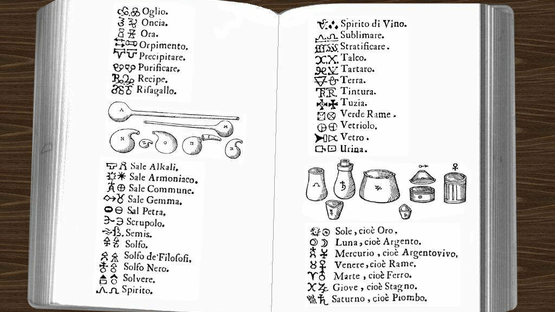 Oglio.
Oncia.
Ora.
Orpimento.
Precipitare.
Purificare.
Recipe.
Risagallo.
Sale Alkali.
Sale Armoniaco.
Sale Commune.
Sale Gemma.
Sal Petra.
Scrupolo.
Semis.
Solfo.
Solfo de'Filosofi.
Solfo Nero.
Solvere.
Spirito.
Spirito di Vino.
Sublimare.
Stratificare.
Talco.
Tartaro.
Terra.
Tintura.
Tuzia.
Verde Rame.
Vetriolo.
Vetro.
Urina.
Sole, cioè Oro.
Luna, cioè Argento.
Mercurio, cioè Argentovivo,
Venere, cioè Rame.
Marte, cioè Ferro.
Giove, cioè Stagno.
Saturno, cioè Piombo.